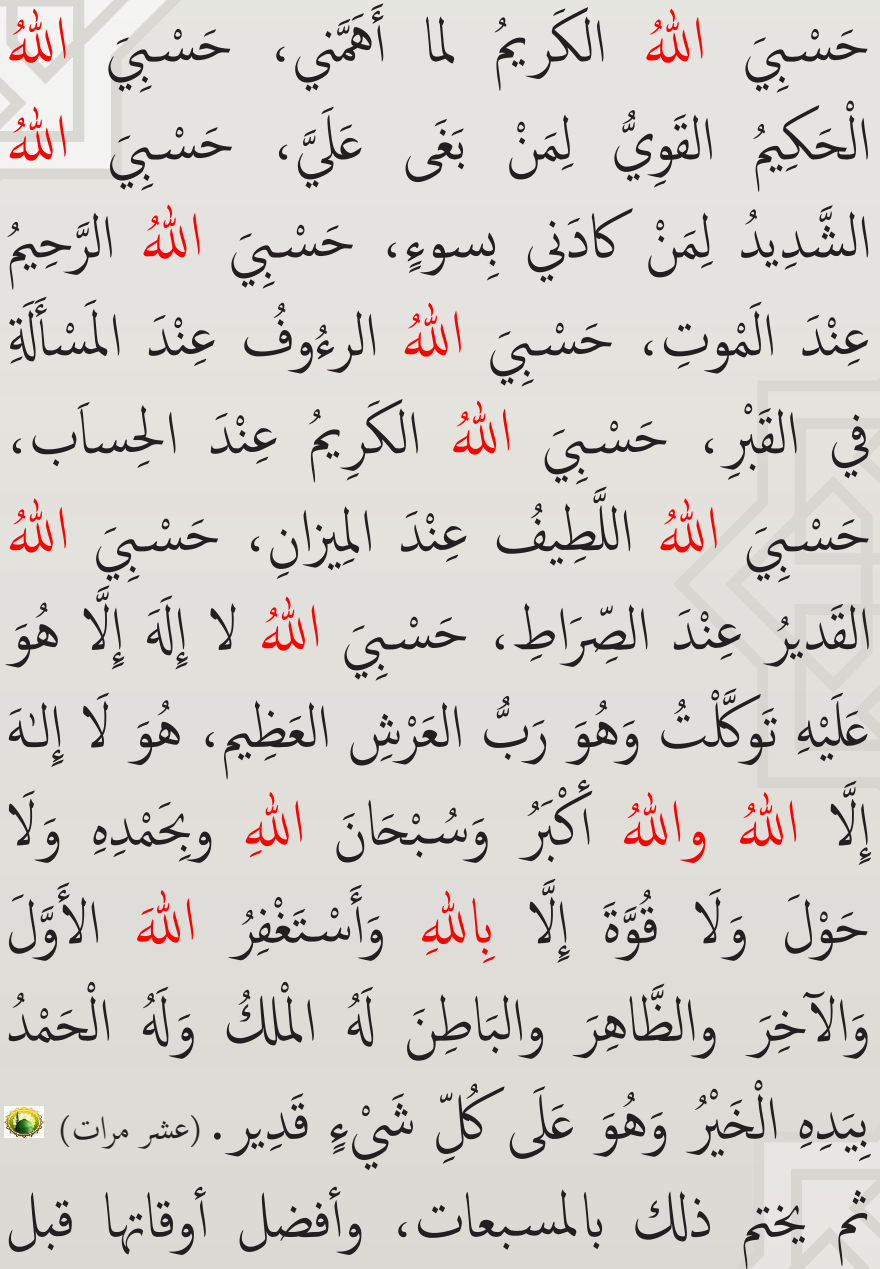 حَسْبِيَ اللهُ الكَريمُ لما أَهَمَّني، حَسْبِيَ اللهُ
الْحَكِيمُ القَوِيُّ لِمَنْ بَغَى عَلَيَّ، حَسْبِيَ اللهُ
الشَّدِيدُ لِمَنْ كادَني بِسوءٍ، حَسْبِيَ اللهُ الرَّحِيمُ
عِنْدَ الَمْوتِ، حَسْبِيَ اللهُ الرءُوفُ عِنْدَ المَسْأَلَةِ
في القَبْرِ، حَسْبِيَ اللهُ الكَرِيمُ عِنْدَ الحِساَب،
حَسْبِيَ اللهُ اللَّطِيفُ عِنْدَ المِيزانِ، حَسْبِيَ اللهُ
القَديرُ عِنْدَ الصِّرَاطِ، حَسْبِيَ اللهُ لا إِلَهَ إِلَّا هُوَ
عَلَيْهِ تَوكَّلْتُ وَهُوَ رَبُّ العَرْشِ العَظِيم، هُوَ لَا إِلـٰهَ
إِلَّا اللهُ واللهُ أَكْبَرُ وَسُبْحَانَ اللهِ وبِحَمْدِهِ وَلَا
حَوْلَ وَلَا قُوَّةَ إِلَّا بِاللهِ وَأَسْتَغْفِرُ اللهَ الأَوَّلَ
وَالآخِرَ والظَّاهِرَ والبَاطِنَ لَهُ المْلكُ وَلَهُ الْحَمْدُ
بِيَدِهِ الْخَيْرُ وَهُوَ عَلَى كُلِّ شَيْءٍ قَدِير. (عشر مرات)
ثم يختم ذلك بالمسبعات، وأفضل أوقاتها قبل